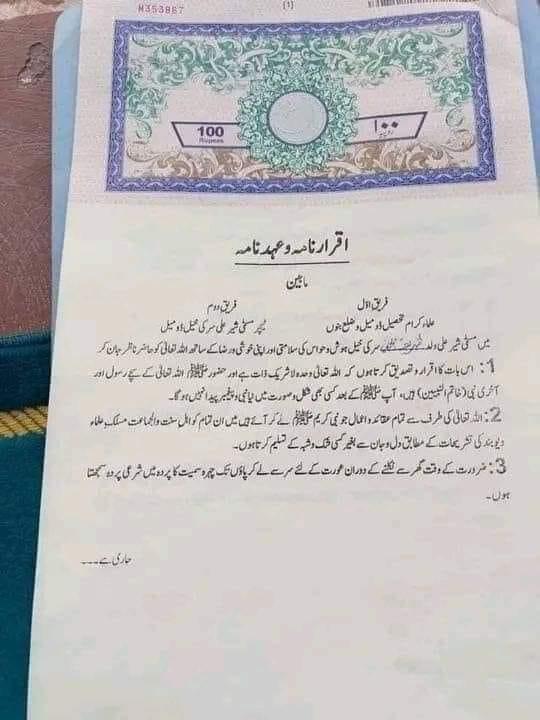 M353867
(1)
100
Rupees
۱۰۰
روپیہ
اقرار نامہ و عہد نامہ
مابین
فریق اوّل فریق دوم
علماء کرام تحصیل ڈومیل و ضلع بنوں ٹیچر مسمّٰی شیر علی سرکی خیل ڈومیل
میں مسمّٰی شیر علی ولد سرکی خیل ہوش و حواس کی سلامتی اور اپنی خوشی و رضا کے ساتھ اللہ تعالیٰ کو حاضر ناظر جان کر
1: اس بات کا اقرار و تصدیق کرتا ہوں کہ اللہ تعالیٰ وحدہ لا شریک ذات ہے اور حضور ﷺ اللہ تعالیٰ کے سچے رسول اور
آخری نبی (خاتم النبیین) ہیں، آپ ﷺ کے بعد کسی بھی شکل و صورت میں نیا نبی و پیغمبر پیدا نہیں ہوگا۔
2: اللہ تعالیٰ کی طرف سے تمام عقائد و اعمال جو نبی کریم ﷺ لے کر آئے ہیں میں ان تمام کو اہل سنت والجماعت مسلک علماء
دیوبند کی تشریحات کے مطابق دل و جان سے بغیر کسی شک و شبہ کے تسلیم کرتا ہوں۔
3: ضرورت کے وقت گھر سے نکلنے کے دوران عورت کے لئے سر سے لے کر پاؤں تک چہرہ سمیت کا پردہ میں شرعی پردہ سمجھتا
ہوں۔
جاری ہے۔۔۔